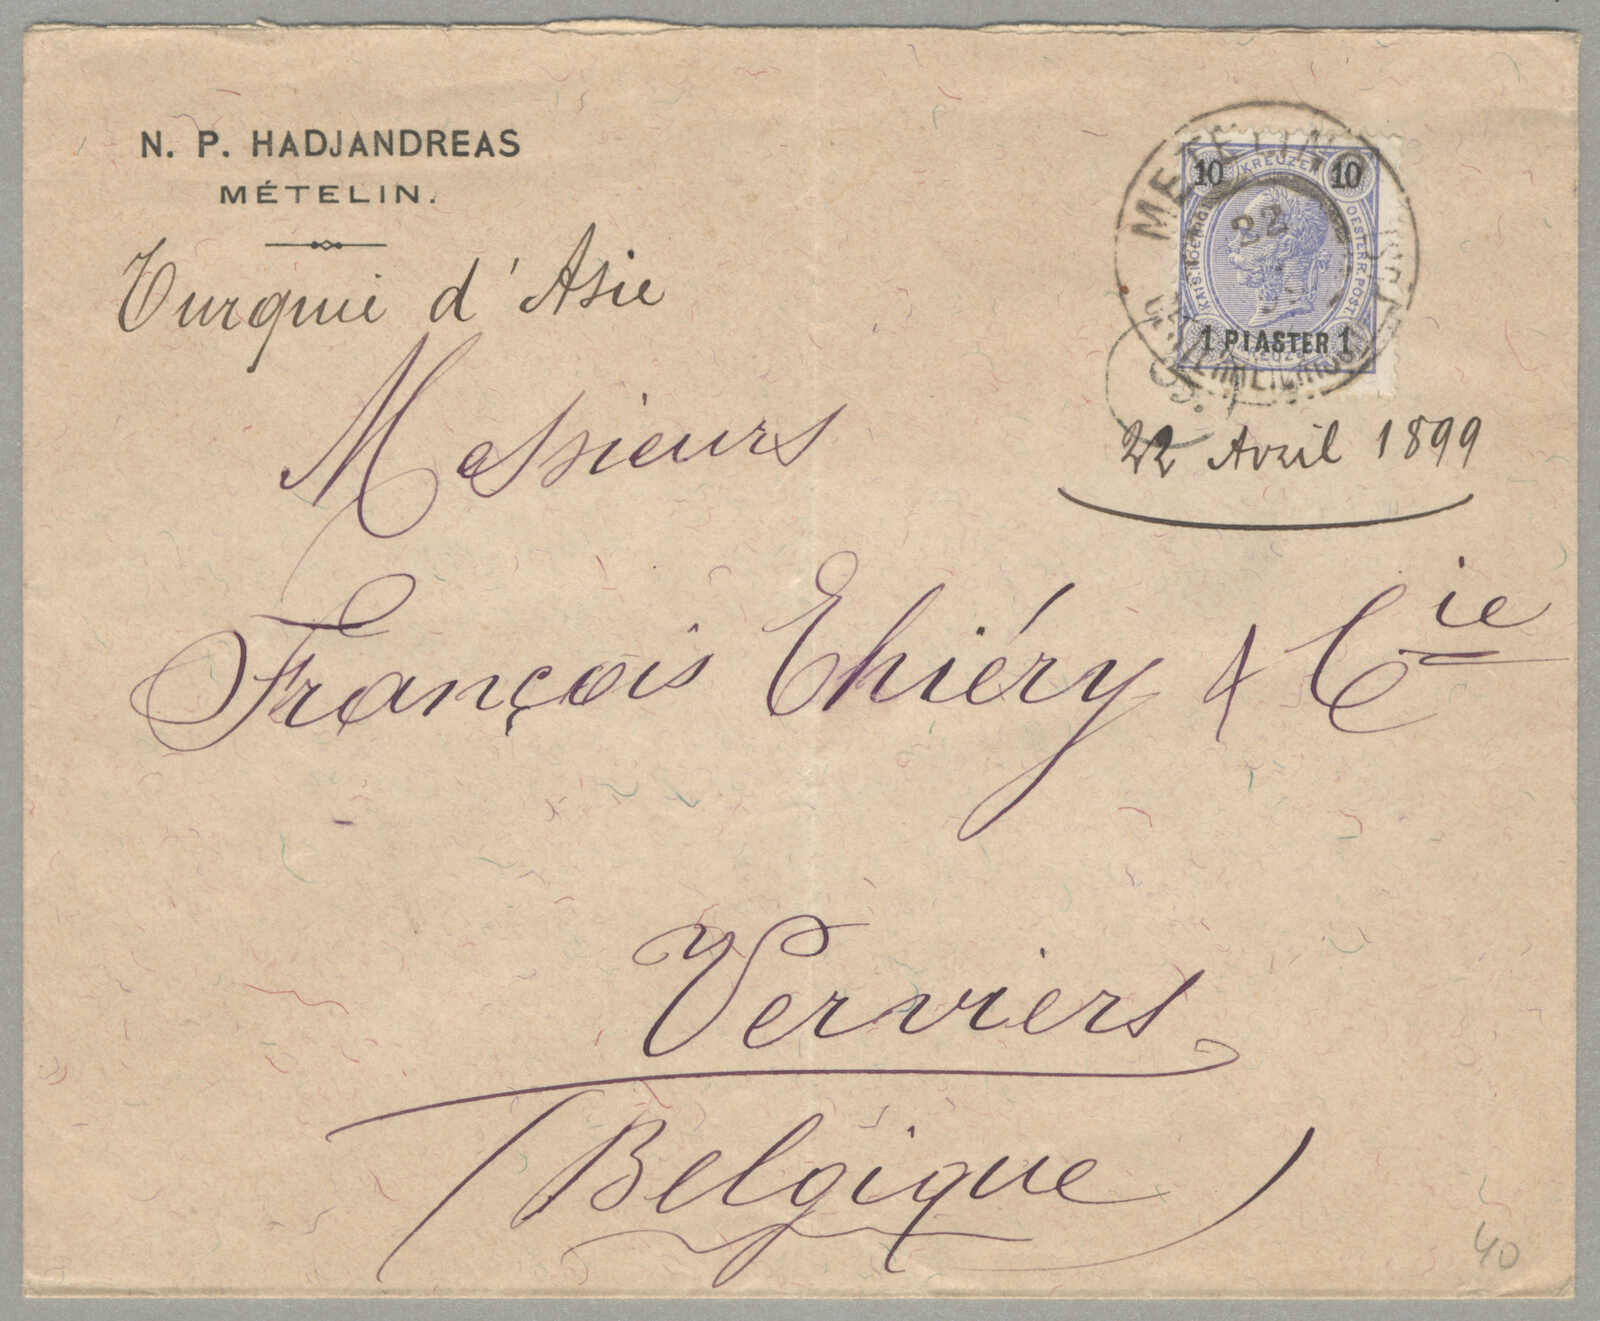 N. P. HADJANDREAS
MÉTELIN.
Turquie d'Asie
METELINO
22
10 KREUZER 10
KAIS. KOENIGL. OESTERR. POST
1 PIASTER 1
22 Avril 1899
Messieurs
François Thiéry & Cie
Verviers
(Belgique)
40